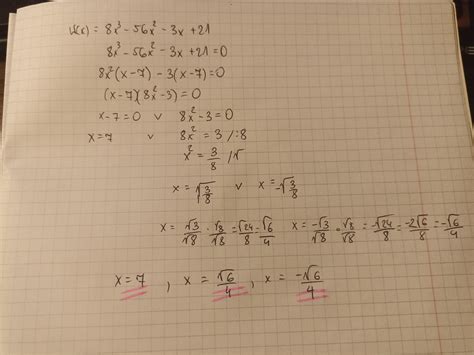 W(x) = 8x³ - 56x² - 3x + 21
8x³ - 56x² - 3x + 21 = 0
8x²(x - 7) - 3(x - 7) = 0
(x - 7)(8x² - 3) = 0
x - 7 = 0 v 8x² - 3 = 0
x = 7 v 8x² = 3 /:8
x² = 3/8 /√
x = √(3/8) v x = -√(3/8)
x = √3/√8 · √8/√8 = √24/8 = √6/4 x = -√3/√8 · √8/√8 = -√24/8 = -2√6/8 = -√6/4
x = 7 , x = √6/4 , x = -√6/4